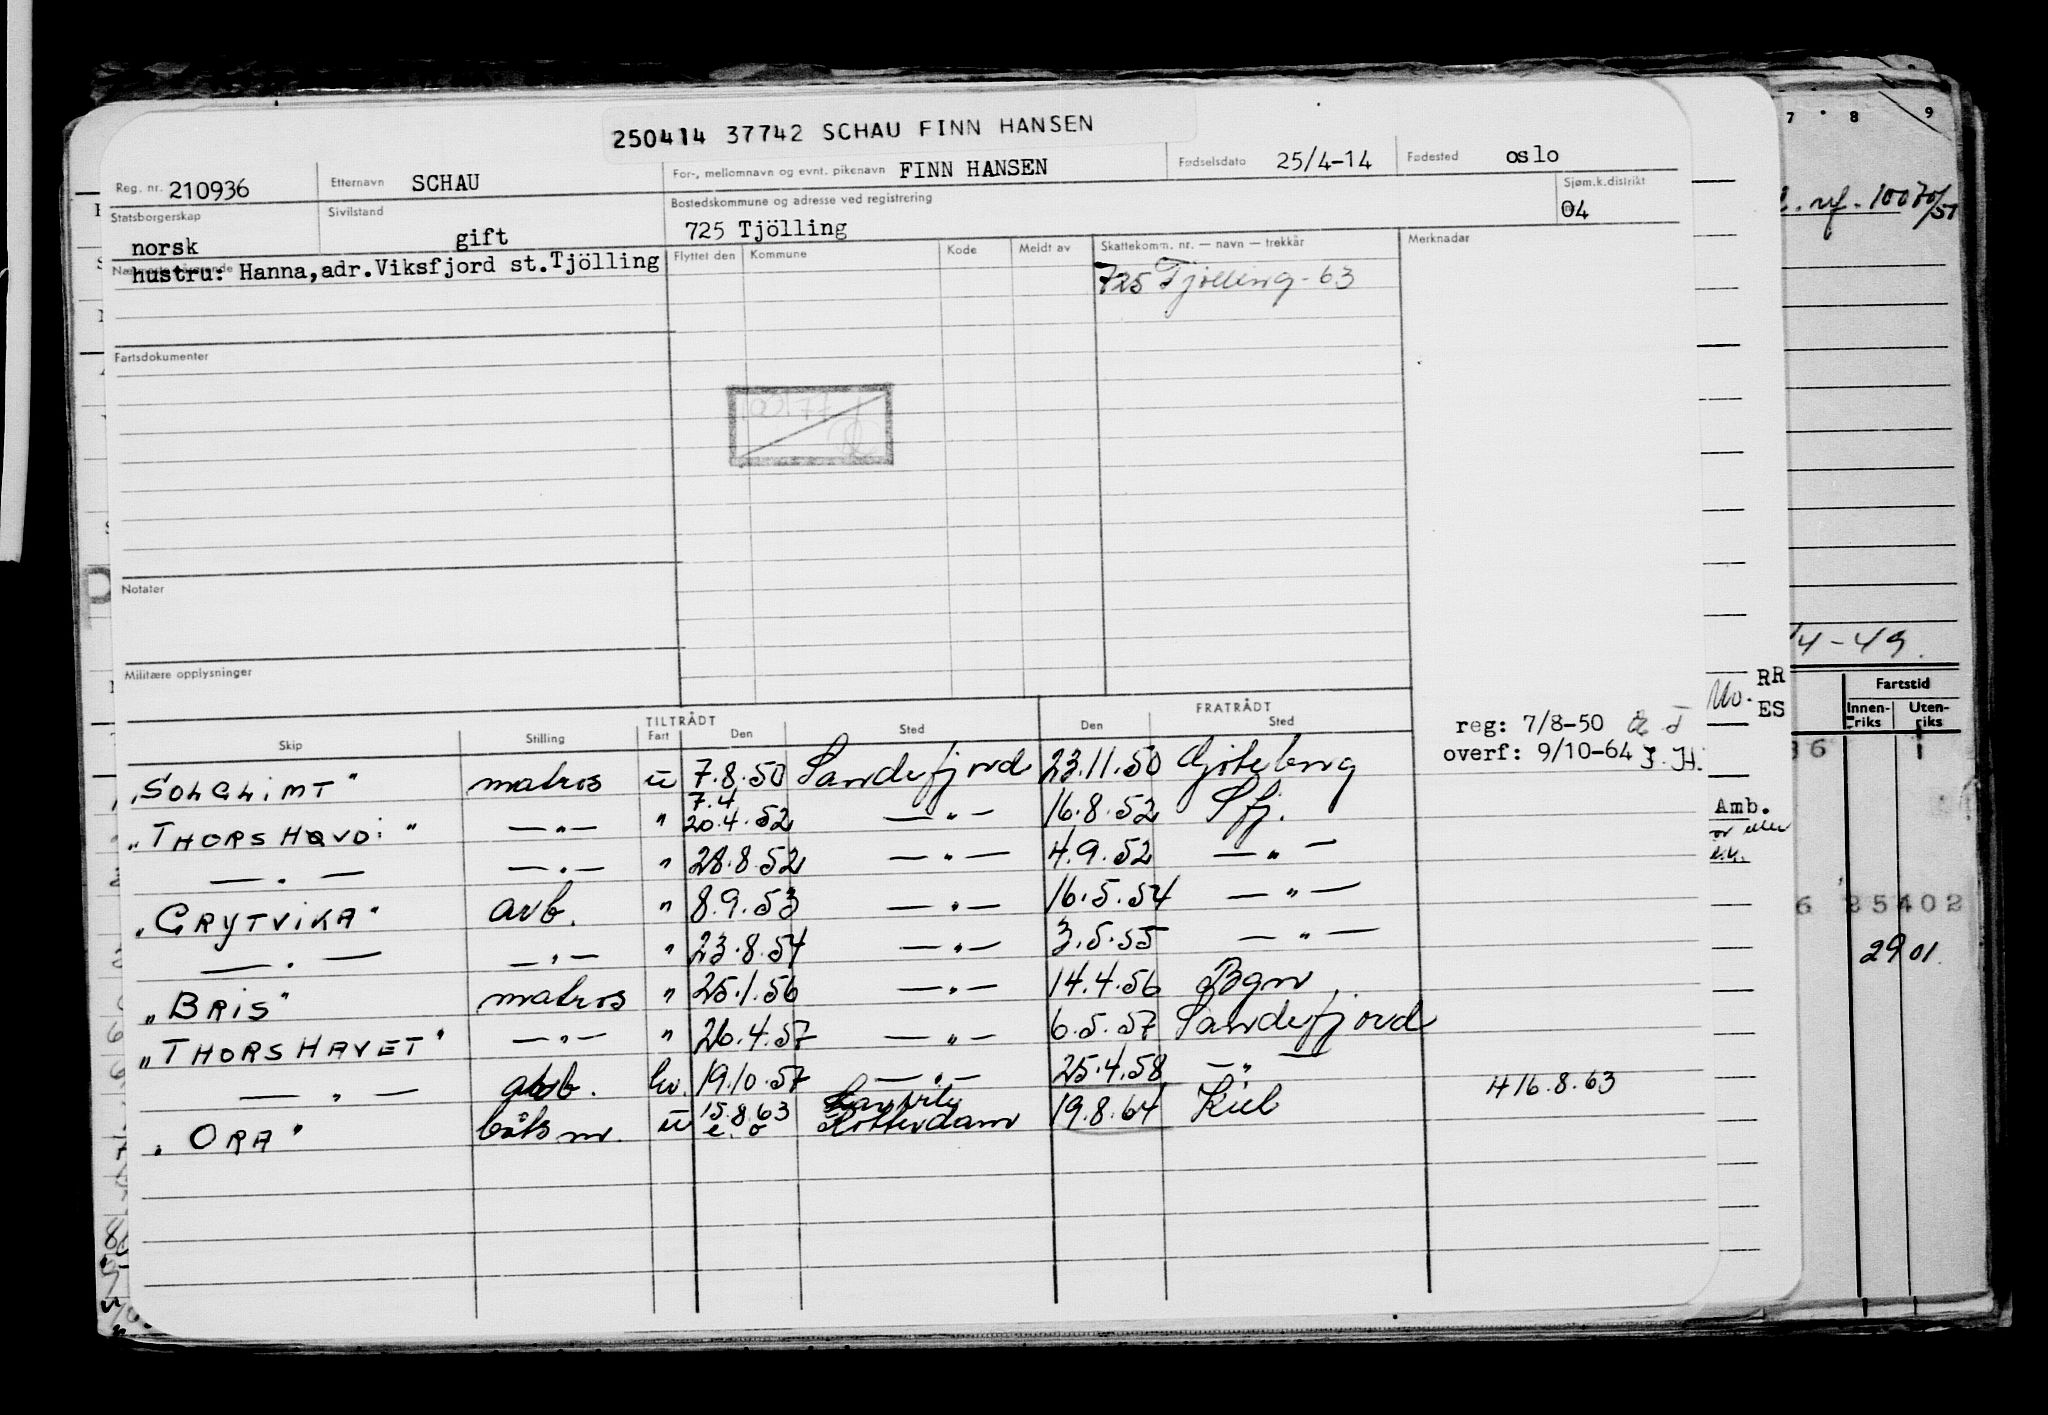 250414 37742 SCHAU FINN HANSEN
Reg. nr. 210936 Etternavn SCHAU For-, mellomnavn og evnt. pikenavn FINN HANSEN Fødselsdato 25/4-14 Fødested oslo
Statsborgerskap norsk Sivilstand gift Bostedskommune og adresse ved registrering 725 Tjölling Sjøm.k.distrikt 04
hustru: Hanna,adr.Viksfjord st.Tjölling
Flyttet den Kommune Kode Meldt av Skattekomm. nr. — navn — trekkår Merknadar
725 Tjølling - 63
Fartsdokumenter
Notater
Militære opplysninger
TILTRÅDT FRATRÅDT
Skip Stilling Fart Den Sted Den Sted
reg: 7/8-50
overf: 9/10-64 J.H.
"SOLGLIMT" matros u 7.8.50 Sandefjord 23.11.50 Gøteborg
7.4
"THORSHØVDI" —"— " 20.4.52 —"— 16.8.52 Sfj.
—"— —"— " 28.8.52 —"— 4.9.52 —"—
"GRYTVIKA" arb. " 8.9.53 —"— 16.5.54 —"—
—"— —"— " 23.8.54 —"— 3.5.55 —"—
"BRIS" matros " 25.1.56 —"— 14.4.56 Bgn
"THORSHAVET" —"— " 26.4.57 —"— 6.5.57 Sandefjord
—"— arb. hv. 19.10.57 —"— 25.4.58 —"—
"ORA" båtsm. u 15.8.63 Rotterdam 19.8.64 Kiel 416.8.63
7 8 9
10070/51
4-49.
Mo. RR
ES
Fartstid
Innen-riks Uten-riks
36 1
Amb.
6 25402
2901